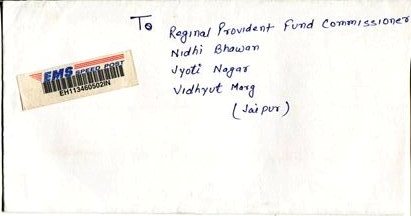 To
Reginal Provident Fund Commissioner
Nidhi Bhawan
Jyoti Nagar
Vidhyut Marg
(Jaipur)
EMS SPEED POST
EH113460502IN